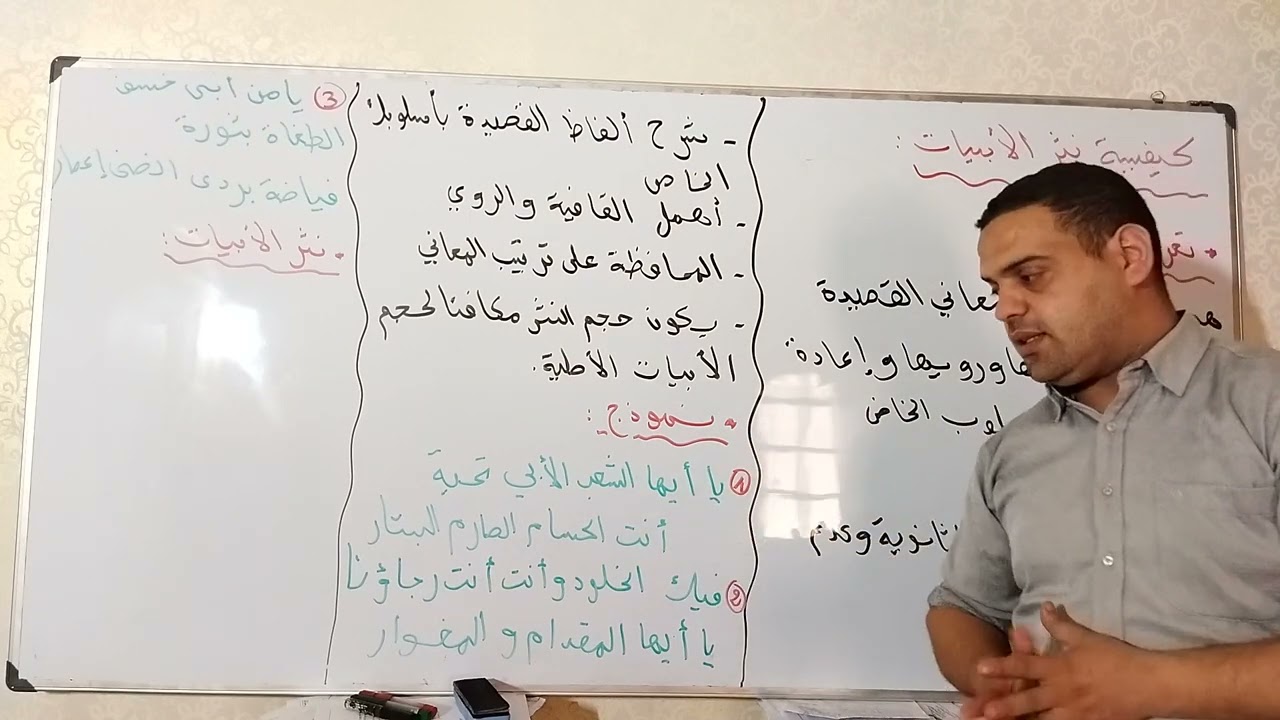 كيفية نثر الأبيات :
معاني القصيدة
ورويها وإعادة
الخاص
الثانوية وعدم
- شرح ألفاظ القصيدة بأسلوبك
الخاص
- أهمل القافية والروي
- المحافظة على ترتيب المعاني
- يكون حجم النثر مكافئا لحجم
الأبيات الأصلية.
• نموذج :
1 يا أيها الشعب الأبي تحية
أنت الحسام الصارم البتار
2 فيك الخلود وأنت أنت رجاؤنا
يا أيها المقدام و المغوار
3 يا من أبى خسف
الطغاة بثورة
فياضة بردى الضنى إعصار
• نثر الأبيات :